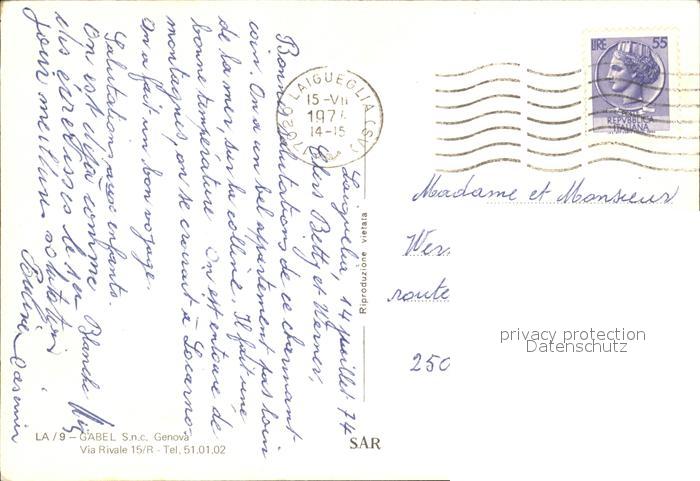 Laiguelia, 14 juillet 74
Chers Betty et Werner,
Bonnes salutations de ce charmant
coin. On a un bel appartement pas loin
de la mer, sur la colline. Il fait une
bonne température. On est entouré de
montagnes, on se croirait à Locarno.
On a fait un bon voyage.
Salutations aux enfants.
On est déjà comme
des écrevisses le 1er
jour meilleures salutations
Blanche
LAIGUEGLIA (SV)
15-VII
1974
14-15
LIRE 55
REPVBBLICA
ITALIANA
Madame et Monsieur
Wer
route
250
privacy protection
Datenschutz
Riproduzione vietata
SAR
LA / 9 - GABEL S.n.c. Genova
Via Rivale 15/R - Tel. 51.01.02